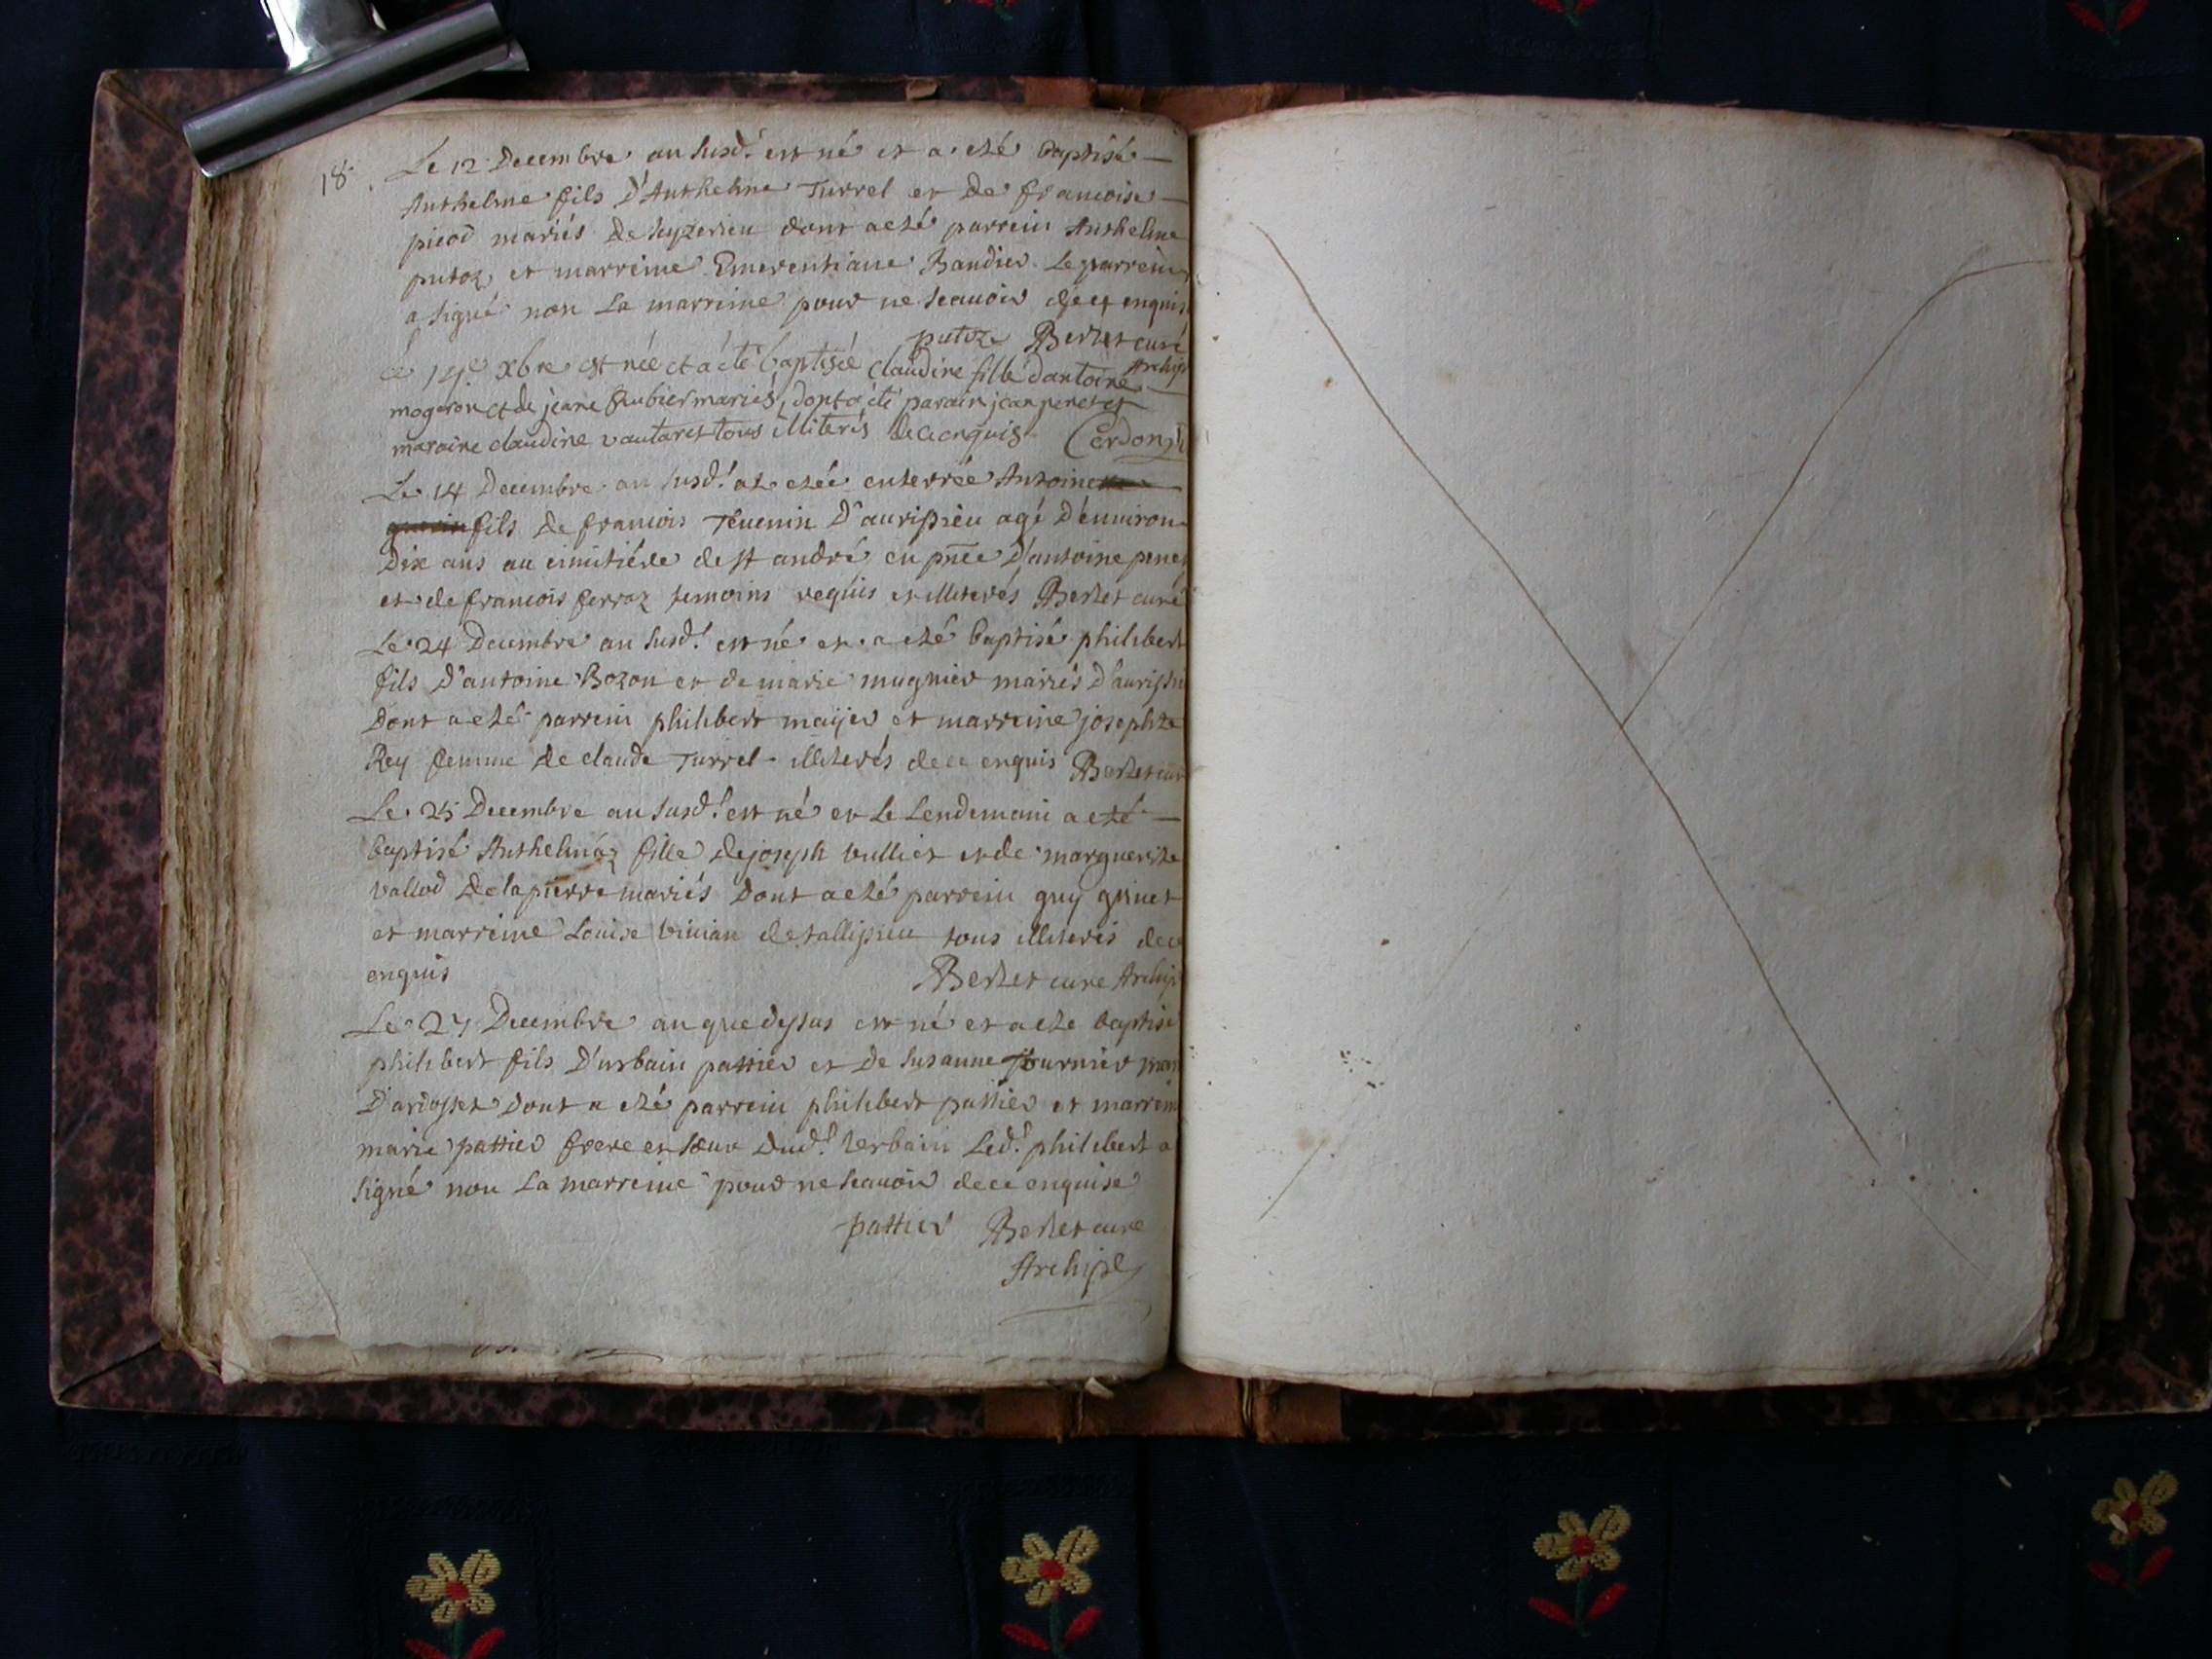 18.
Le 12 Decembre an susd.t est né et a eté baptisé —
Anthelme fils D'Anthelme Turrel et De francoise —
picod mariés De luyzerieu dont a eté parrein Anthelme
putoz et marreine Emerentiane Baudier. Le parrein
a signé non La marreine pour ne scauoir de ce enquis
putoz Berlet curé
Archip
Le 14e xbre est née et a été baptisée claudine fille d'antoine
mogeron et de jeane Aubier mariés, dont a été parain jean peret et
maraine claudine vautaret tous illiterés de ce enquis Cerdon
Le 14 Decembre an susd.t at etée enterrée Antoine
fils de francois Teuenin D'aurissieu agé D'enuiron
Dix ans au cimitiére de st andré en pñce D'antoine penet
et de francois ferroz temoins requis et illiterés Berlet curé
Le 24 Decembre an susd.t est né et a eté baptisé philibert
fils D'antoine Bozon et de marie mugnier mariés D'aurissi
Dont a eté parrein philibert maijer et marreine josephte
Rey femme de claude Turrel illiterés de ce enquis Berlet cur
Le 25 Decembre an susd.t est né et Le Lendemain a eté —
baptisé Anthelmaz fille de joseph vulliet et de marguerite
vallod De lapierre mariés Dont a eté parrein guy ginet
et marreine Louise viuian de tallissieu tous illiterés de ce
enquis Berlet cure Archip
Le 27 Decembre an que dessus est né et a ete baptisé
philibert fils D'urbain pattier et De susanne fournier mari
D'ardosset Dont a eté parrein philibert pattier et marrein
marie pattier frere et sœur Dud.t Urbain Led.t philibert a
signé non La marreine pour ne scauoir de ce enquise
pattier Berlet cure
Archip